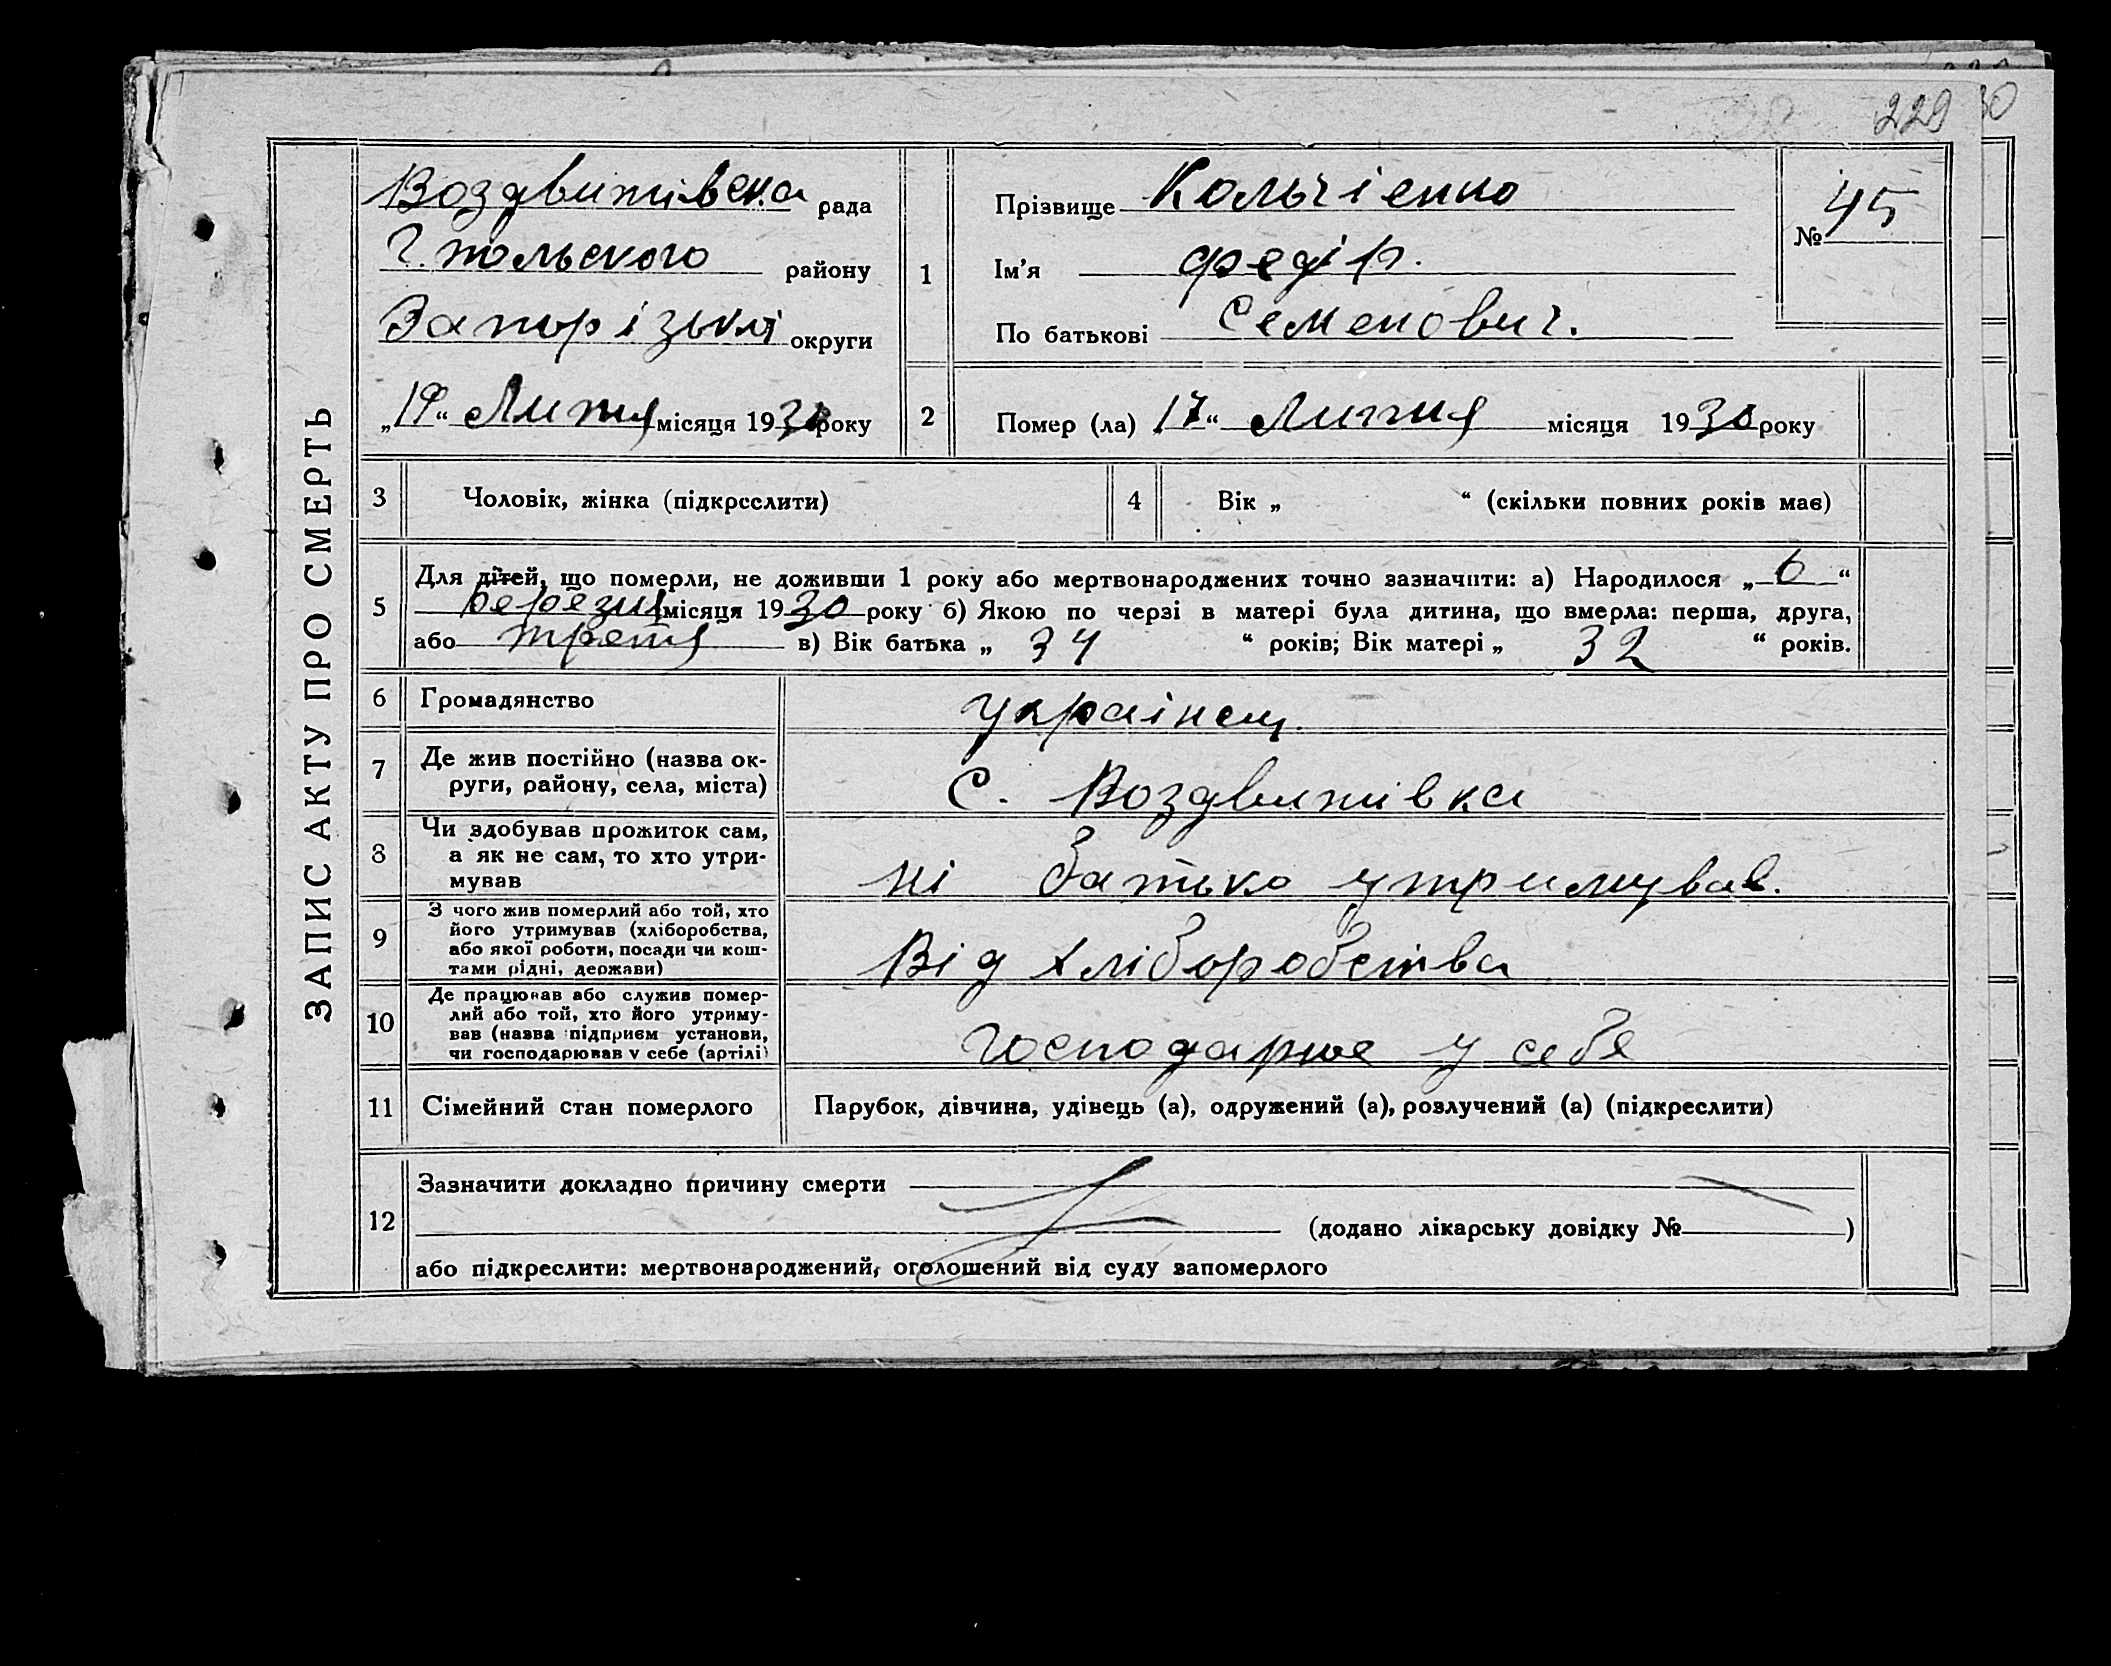 229
ЗАПИС АКТУ ПРО СМЕРТЬ
Воздвижівська рада
Г.польского району
Запорізької округи
„19“ Липня місяця 1930 року
1
Прізвище Кольчієнко
Ім'я Федір.
По батькові Семенович.
№ 45
2
Помер (ла) „17“ Липня місяця 1930 року
3
Чоловік, жінка (підкреслити)
4
Вік „ “ (скільки повних років має)
5
Для дітей, що померли, не доживши 1 року або мертвонароджених точно зазначити: а) Народилося „6“
березня місяця 1930 року б) Якою по черзі в матері була дитина, що вмерла: перша, друга,
або третя в) Вік батька „ 34 “ років; Вік матері „ 32 “ років.
6
Громадянство
українец.
7
Де жив постійно (назва ок-
руги, району, села, міста)
С. Воздвижівка
8
Чи здобував прожиток сам,
а як не сам, то хто утри-
мував
ні батько утримував.
9
З чого жив померлий або той, хто
його утримував (хліборобства,
або якої роботи, посади чи кош-
тами рідні, держави)
Від хліборобства
10
Де працював або служив помер-
лий або той, хто його утриму-
вав (назва підприєм установи,
чи господарював у себе (артілі)
Господарює у себе
11
Сімейний стан померлого
Парубок, дівчина, удівець (а), одружений (а), розлучений (а) (підкреслити)
12
Зазначити докладно причину смерти
(додано лікарську довідку № )
або підкреслити: мертвонароджений, оголошений від суду запомерлого